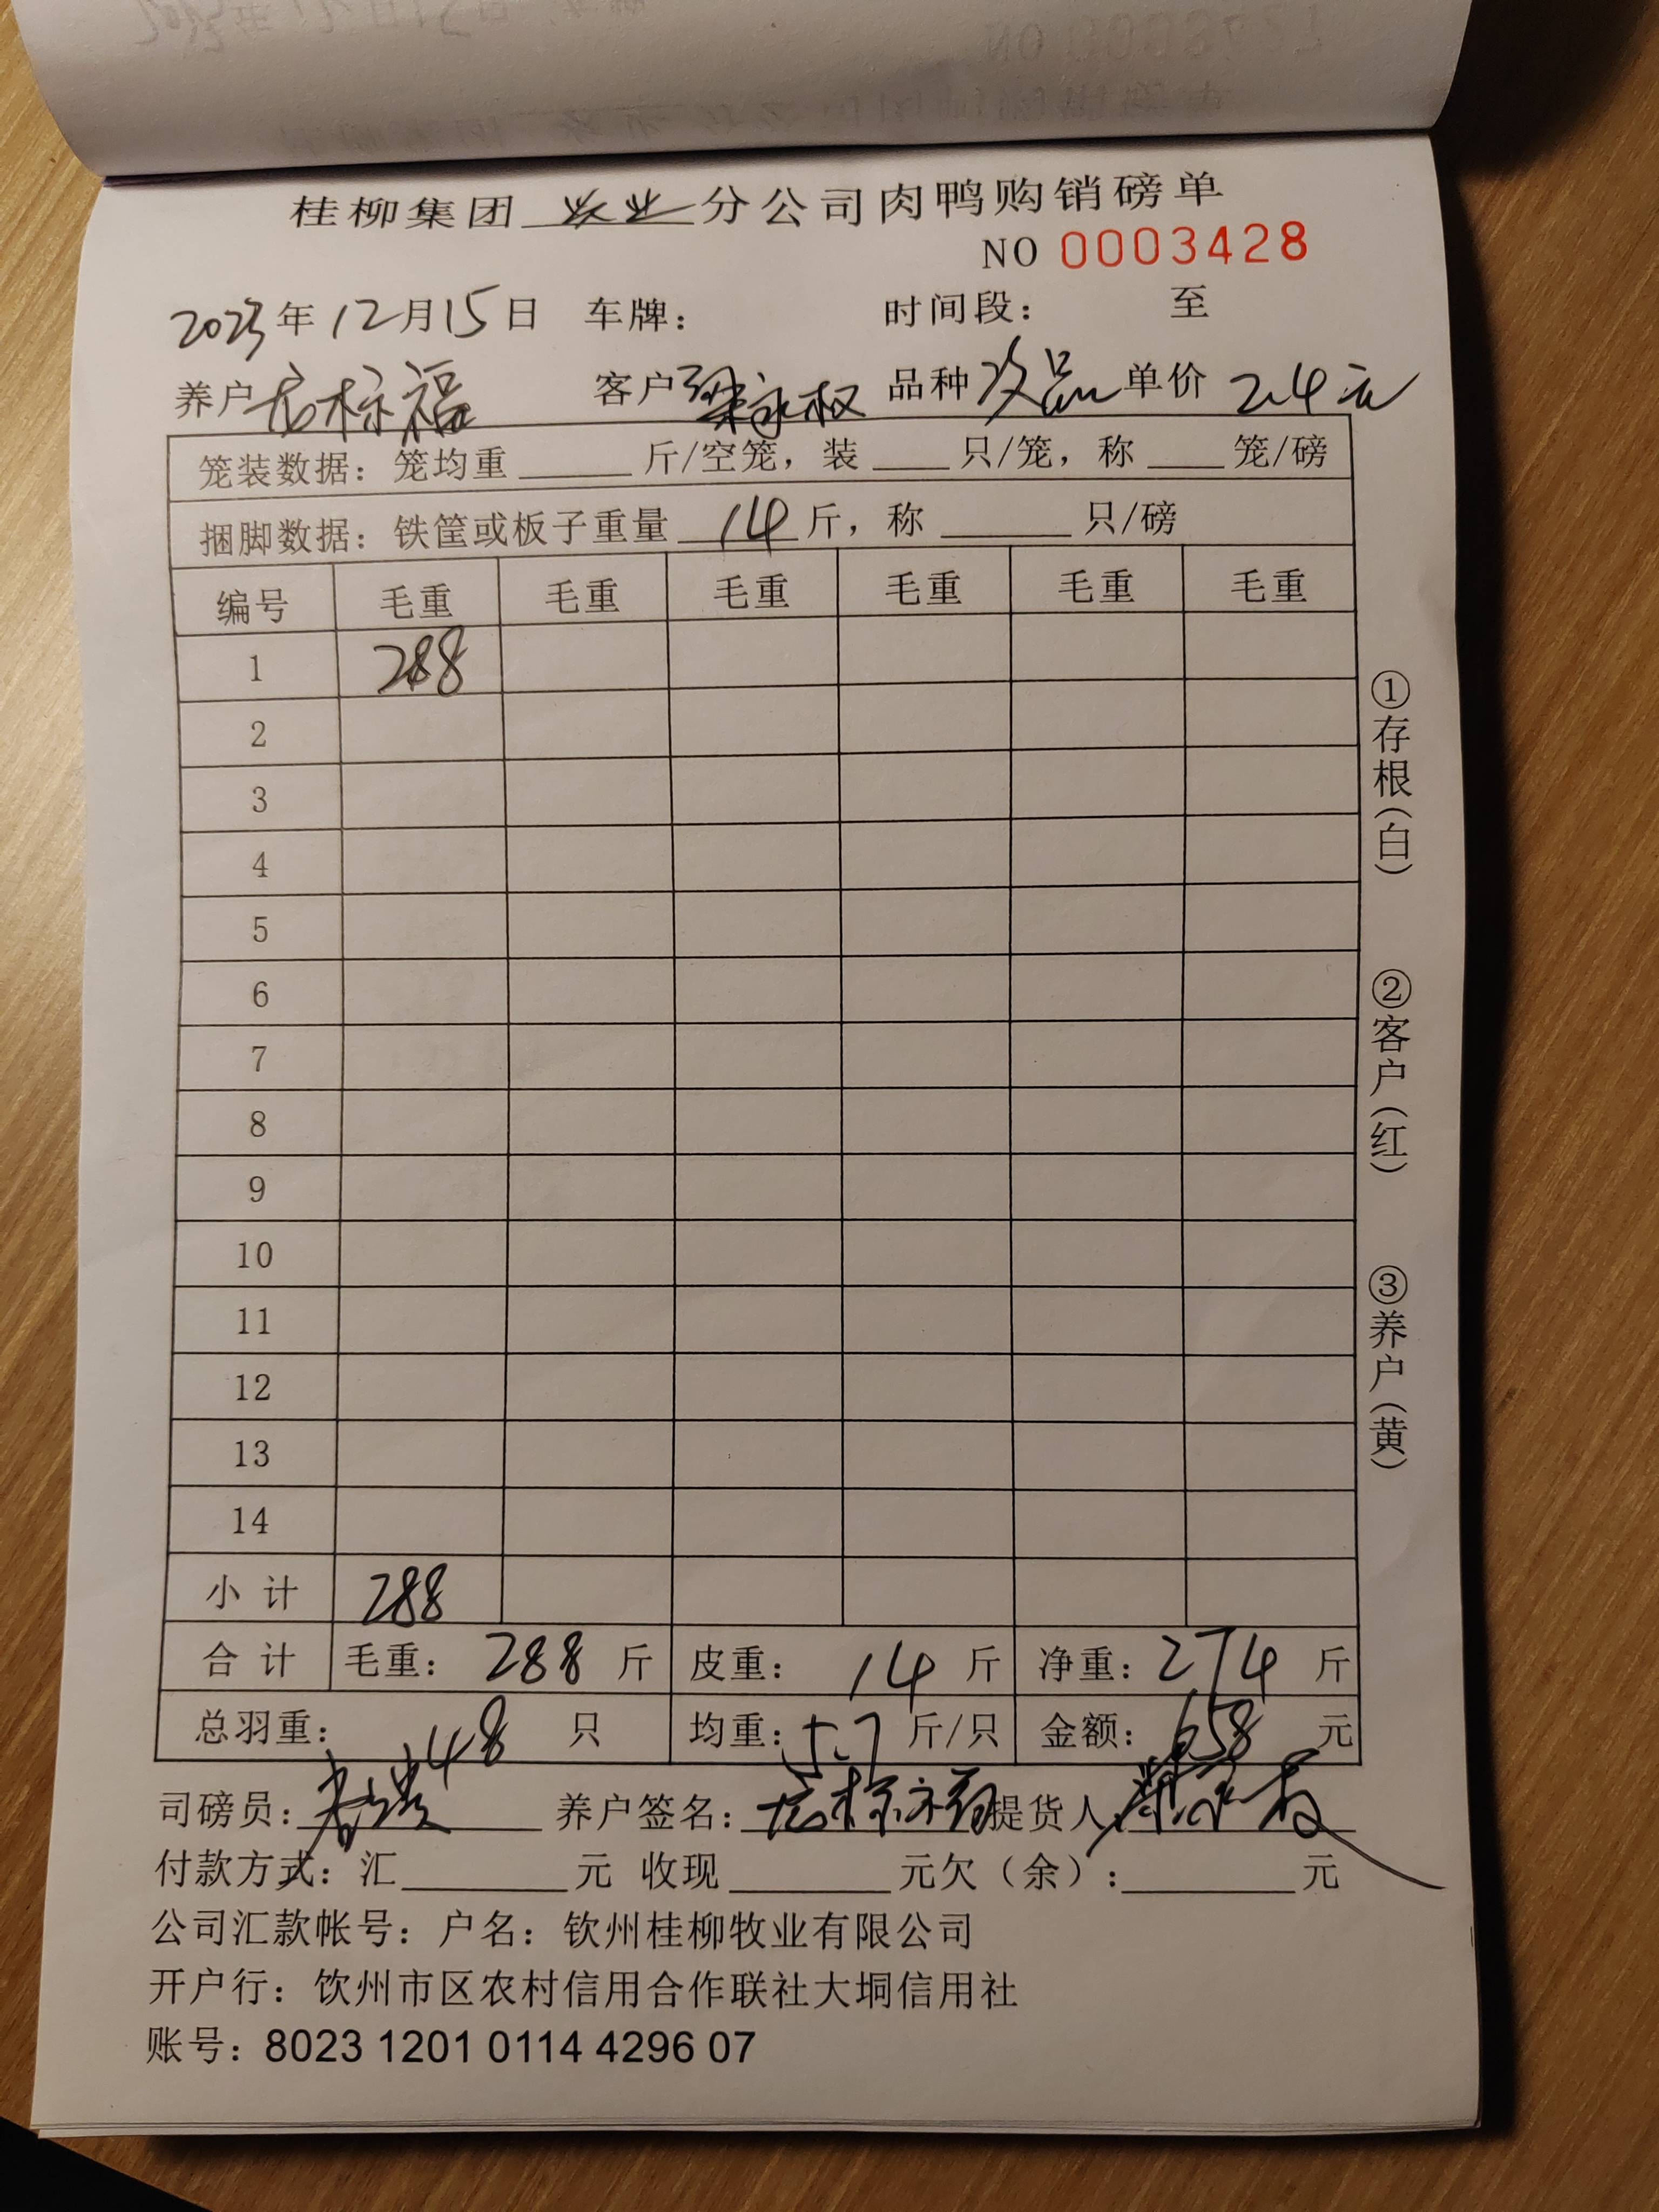 桂柳集团 牧业 分公司肉鸭购销磅单
NO 0003428
2023年12月15日 车牌： 时间段： 至
养户 标福 客户 梁永权 品种 次品 单价 2.4元
笼装数据：笼均重____斤/空笼，装____只/笼，称____笼/磅
捆脚数据：铁筐或板子重量 14 斤，称____只/磅
编号 毛重 毛重 毛重 毛重 毛重 毛重
1 288
2
3
4
5
6
7
8
9
10
11
12
13
14
小计 288
合计 毛重：288斤 皮重：14斤 净重：274斤
总羽重：48只 均重：5.7斤/只 金额：658元
司磅员： 养户签名：标福 提货人：
付款方式：汇____元 收现____元欠（余）：____元
公司汇款帐号：户名：钦州桂柳牧业有限公司
开户行：饮州市区农村信用合作联社大垌信用社
账号：8023 1201 0114 4296 07
①存根（白）
②客户（红）
③养户（黄）